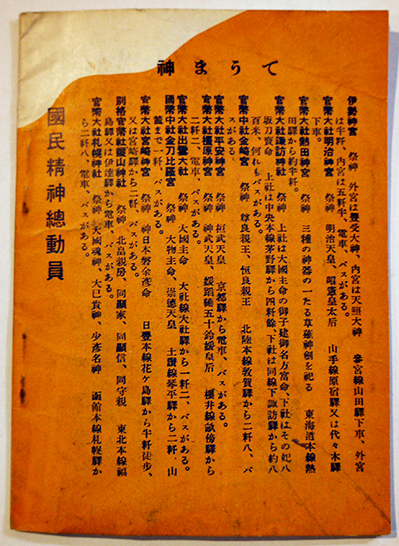 てうま神
伊勢神宮　祭神　外宮は豐受大神、内宮は天照大神　參宮線山田驛下車、外宮
は半粁、内宮は五粁半、電車、バスがある。
官幣大社明治神宮　祭神　明治天皇、昭憲皇太后　山手線原宿驛又は代々木驛
下車。
官幣大社熱田神宮　祭神　三種の神器の一たる草薙神劍を祀る　東海道本線熱
田驛から約半粁。
官幣大社諏訪神社　祭神　上社は大國主命の御子建御名方富命、下社はその妃八
坂刀賣命　上社は中央本線茅野驛から四粁餘、下社は同線下諏訪驛から約八
百米、何れもバスがある。
官幣中社金崎宮　祭神　尊良親王、恒良親王　北陸本線敦賀驛から二粁八、バ
スがある。
官幣大社平安神宮　祭神　桓武天皇　京都驛から電車、バスがある。
官幣大社橿原神宮　祭神　神武天皇、媛蹈鞴五十鈴媛皇后　櫻井線畝傍驛から
二粁一、電車、バスがある。
官幣大社出雲大社　祭神　大國主命　大社線大社驛から一粁二、バスがある。
國幣中社金刀比羅宮　祭神　大物主命、崇德天皇　土讃線琴平驛から二粁、山
麓まで一粁、バスがある。
官幣大社宮崎神宮　祭神　神日本磐余彦命　日豐本線花ヶ島驛から半粁徒歩、
又は宮崎驛から二粁、バスがある。
別格官幣社靈山神社　祭神　北畠親房、同顯家、同顯信、同守親　東北本線福
島驛又は伊達驛から電車、バスがある。
官幣大社札幌神社　祭神　大國魂神、大己貴神、少彦名神　函館本線札幌驛か
ら二粁八、電車、バスがある。
國民精神總動員